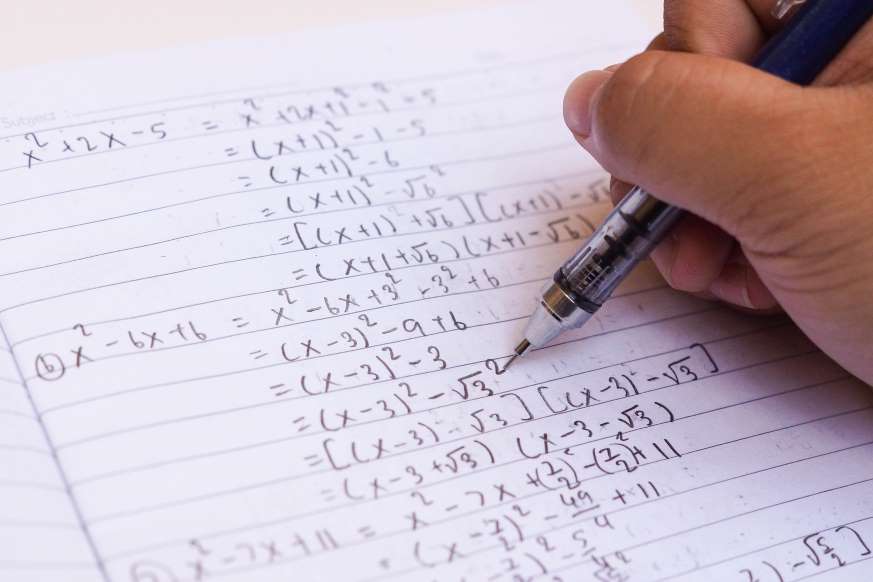 Subject :
x² + 2x - 5 = x² + 2x + 1² - 1² - 5
= (x+1)² - 1 - 5
= (x+1)² - 6
= (x+1)² - √6²
= [(x+1) + √6] [(x+1) - √6
= (x+1+√6) (x+1-√6)
(b) x² - 6x + 6 = x² - 6x + 3² - 3² + 6
= (x-3)² - 9 + 6
= (x-3)² - 3
= (x-3)² - √3²
= [(x-3) - √3] [(x-3) - √3]
= (x-3+√3) (x-3-√3)
x² - 7x + 11 = x² - 7x + (7/2)² - (7/2)² + 11
= (x - 7/2)² - 49/4 + 11
)² - 5/4
) - √5/2]